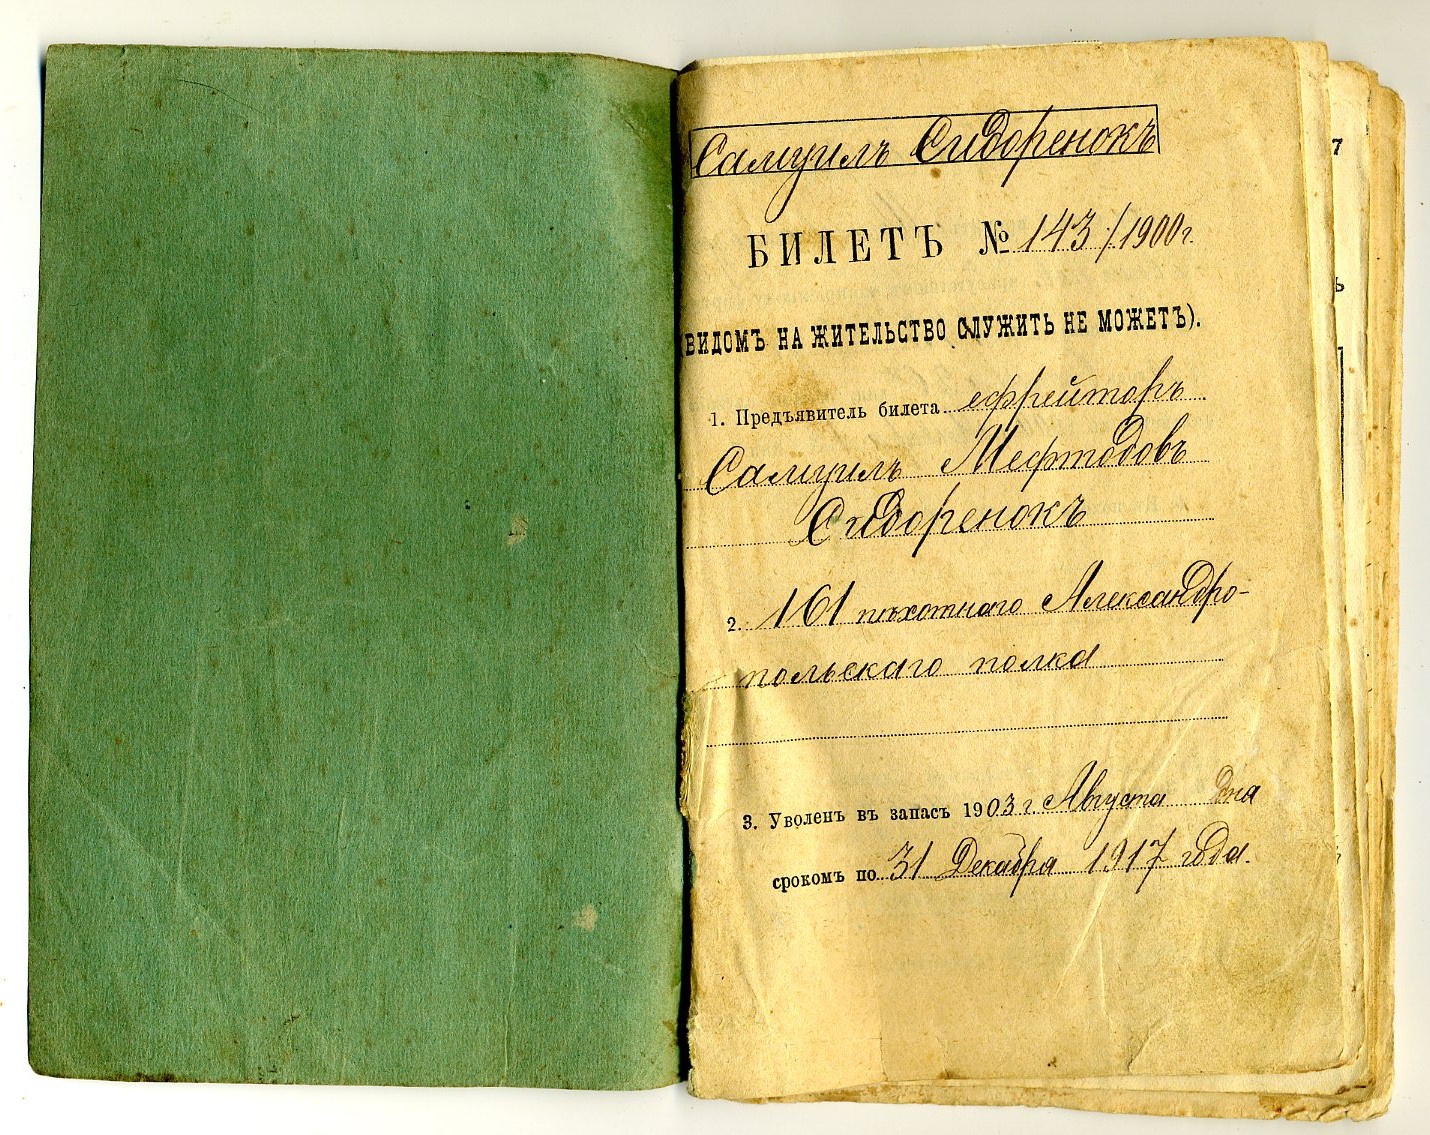 Самуилъ Сидоренокъ
БИЛЕТЪ № 143/1900 г.
(ВИДОМЪ НА ЖИТЕЛЬСТВО СЛУЖИТЬ НЕ МОЖЕТЪ).
1. Предъявитель билета ефрейторъ
Самуилъ Мефтодовъ
Сидоренокъ
2. 161 пѣхотнаго Александро-
польскаго полка
3. Уволенъ въ запасъ 1903 г. Августа дня
срокомъ по 31 Декабря 1917 года.
7
ь